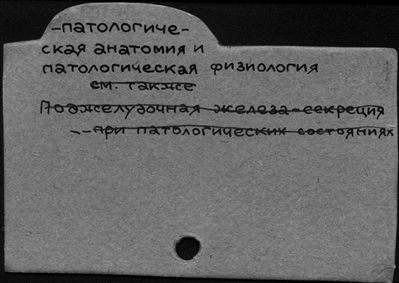 -патологиче-
ская анатомия и
патологическая физиология
см. также
Поджелудочная железа-секреция
-- при патологических состояниях